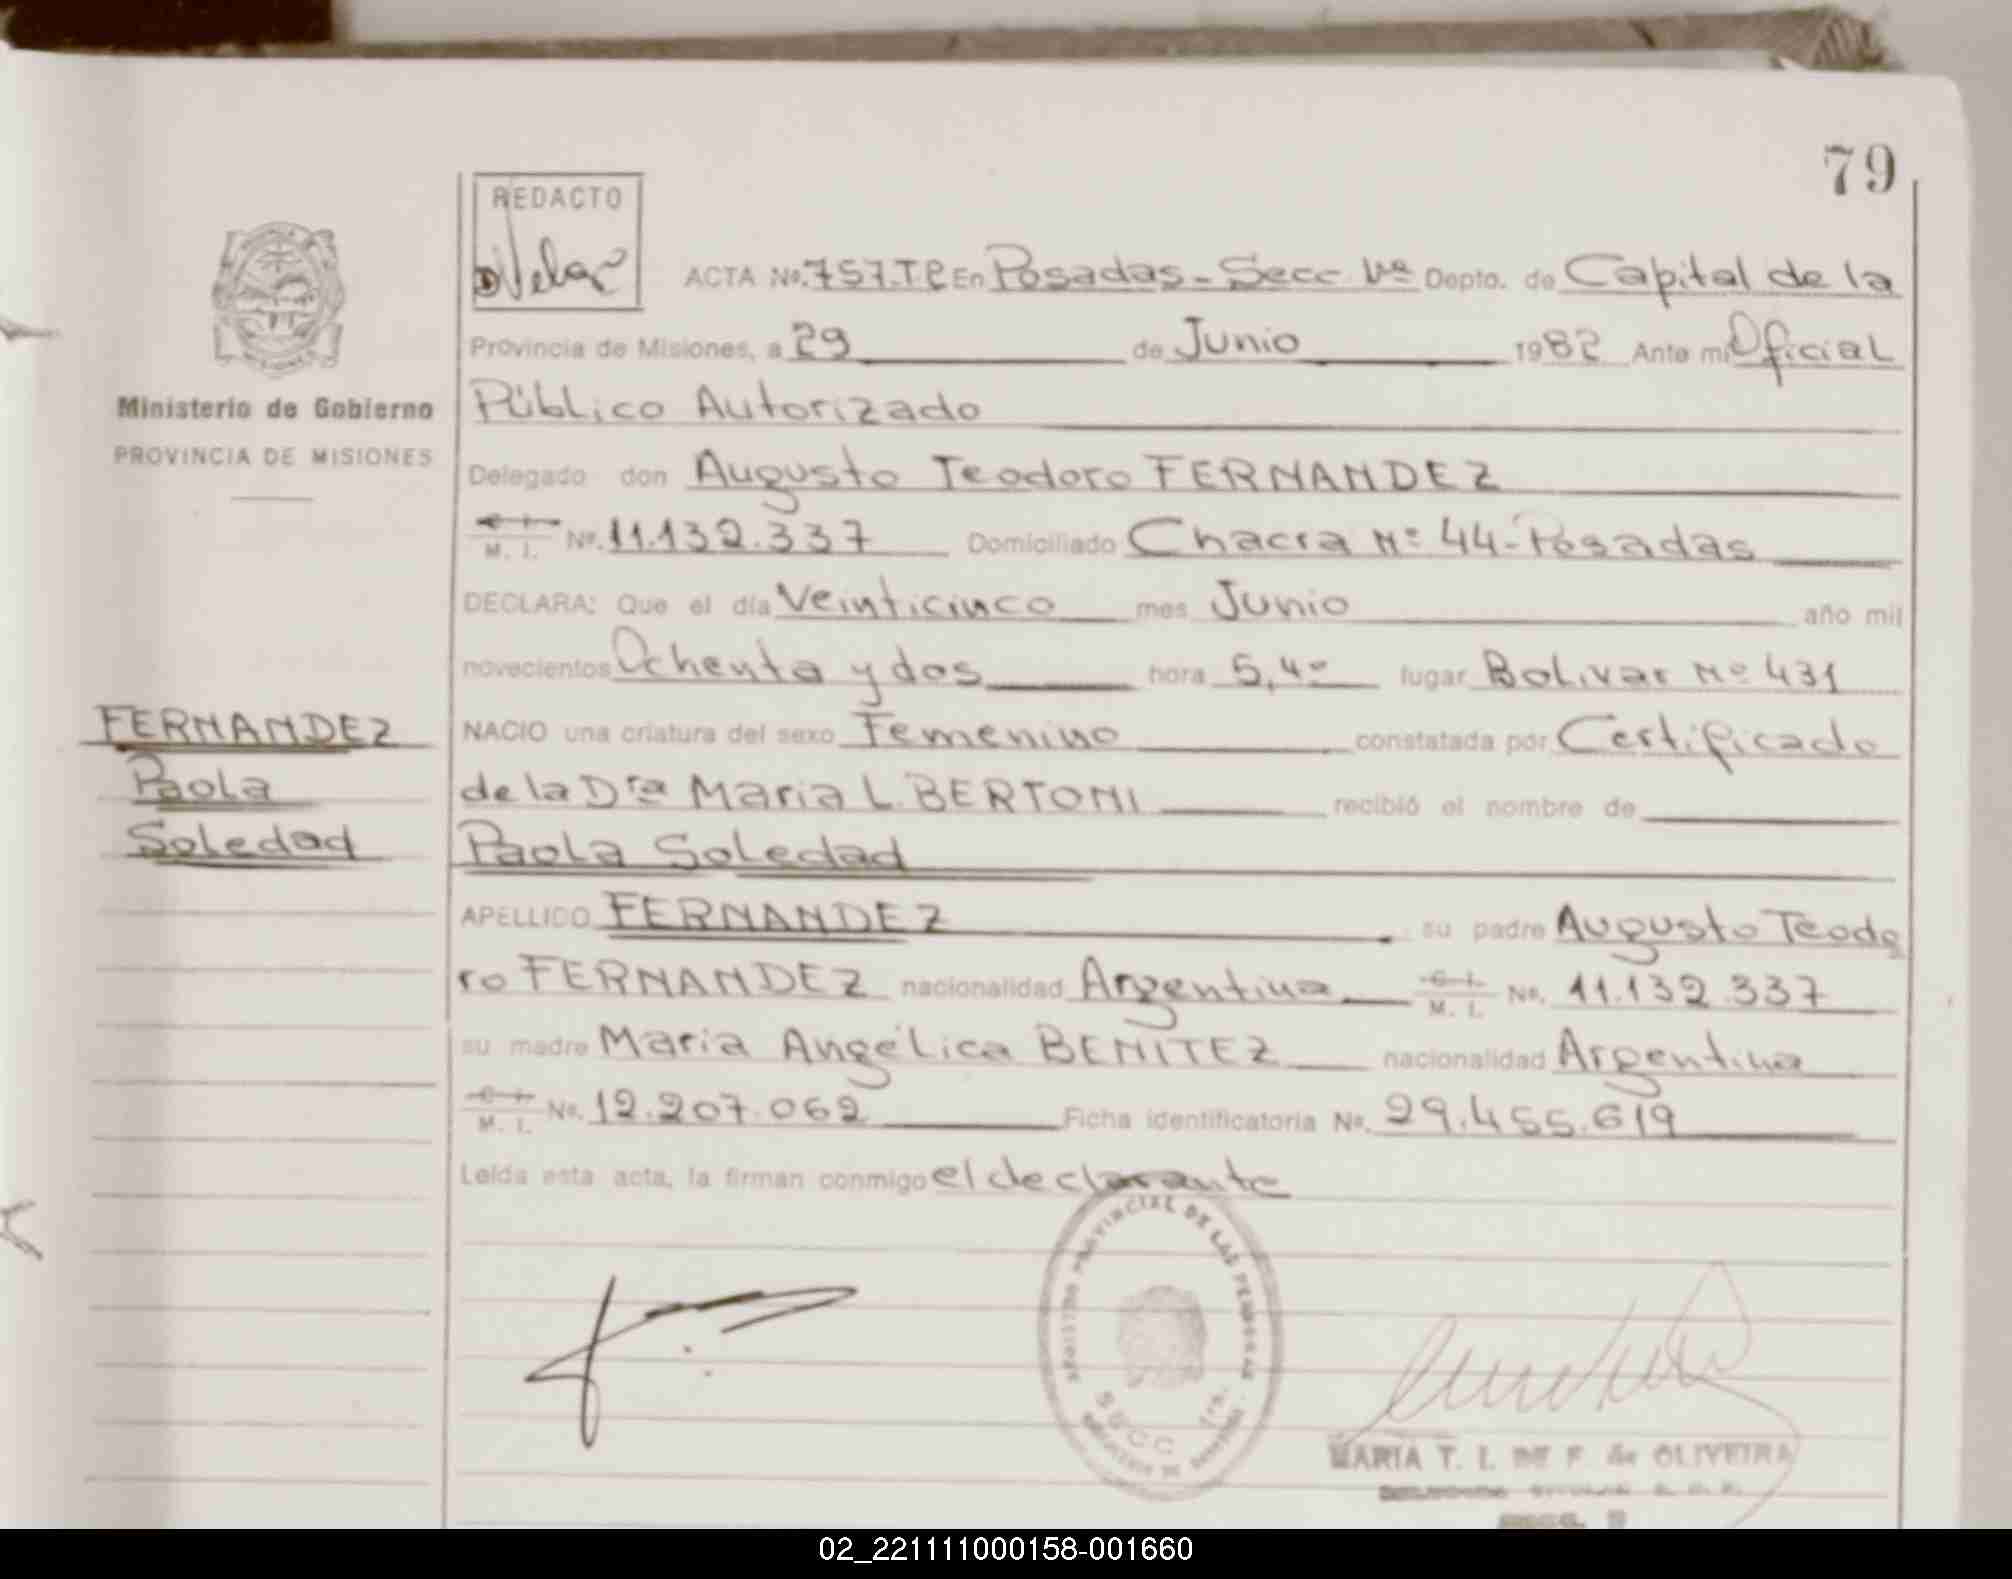 79
REDACTO
ACTA No. 757.TP En Posadas - Secc 1ª Depto. de Capital de la
Provincia de Misiones, a 29 de Junio 1982 Ante mi Oficial
Ministerio de Gobierno
PROVINCIA DE MISIONES
Público Autorizado
Delegado don Augusto Teodoro FERNANDEZ
C. I. M. I. No. 11.132.337 Domiciliado Chacra Nº 44-Posadas
DECLARA: Que el día Veinticinco mes Junio año mil
novecientos Ochenta y dos hora 5,40 lugar Bolivar Nº 431
FERNANDEZ
Paola
Soledad
NACIO una criatura del sexo Femenino constatada por Certificado
de la Dra Maria L. BERTONI recibió el nombre de
Paola Soledad
APELLIDO FERNANDEZ su padre Augusto Teodo
ro FERNANDEZ nacionalidad Argentina C. I. M. I. No. 11.132.337
su madre Maria Angélica BENITEZ nacionalidad Argentina
C. I. M. I. No. 12.207.062 Ficha identificatoria No. 29.455.619
Leída esta acta, la firman conmigo el declarante
REGISTRO PROVINCIAL DE LAS PERSONAS
SECC 1ra.
MARIA T. I. DE F. de OLIVEIRA
02_221111000158-001660